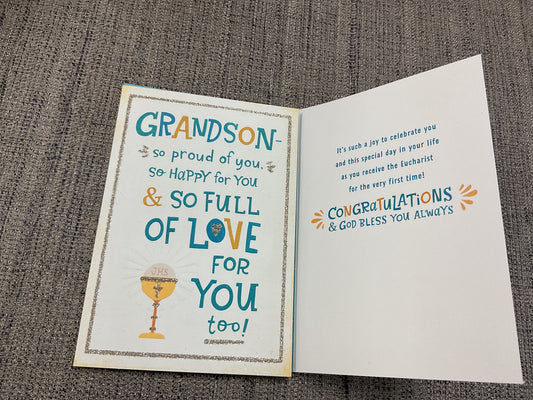 GRANDSON-
so proud of you,
so HaPPY for You
& SO FULL
OF LOVE
FOR
YOU
too!
JHS
It's such a joy to celebrate you
and this special day in your life
as you receive the Eucharist
for the very first time!
CONGRaTULATIONS
& GOD BLESS YOU ALWAYS